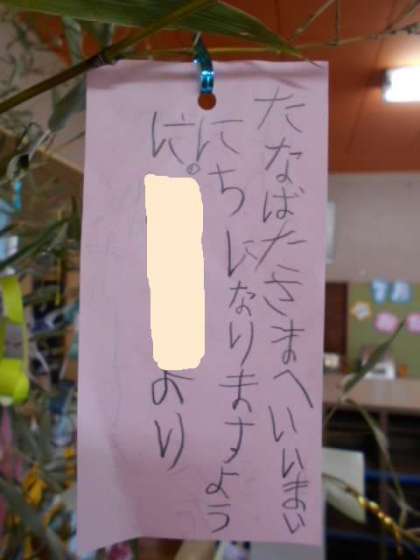 たなばたさまへいいまい
にちになりますよう
に。より